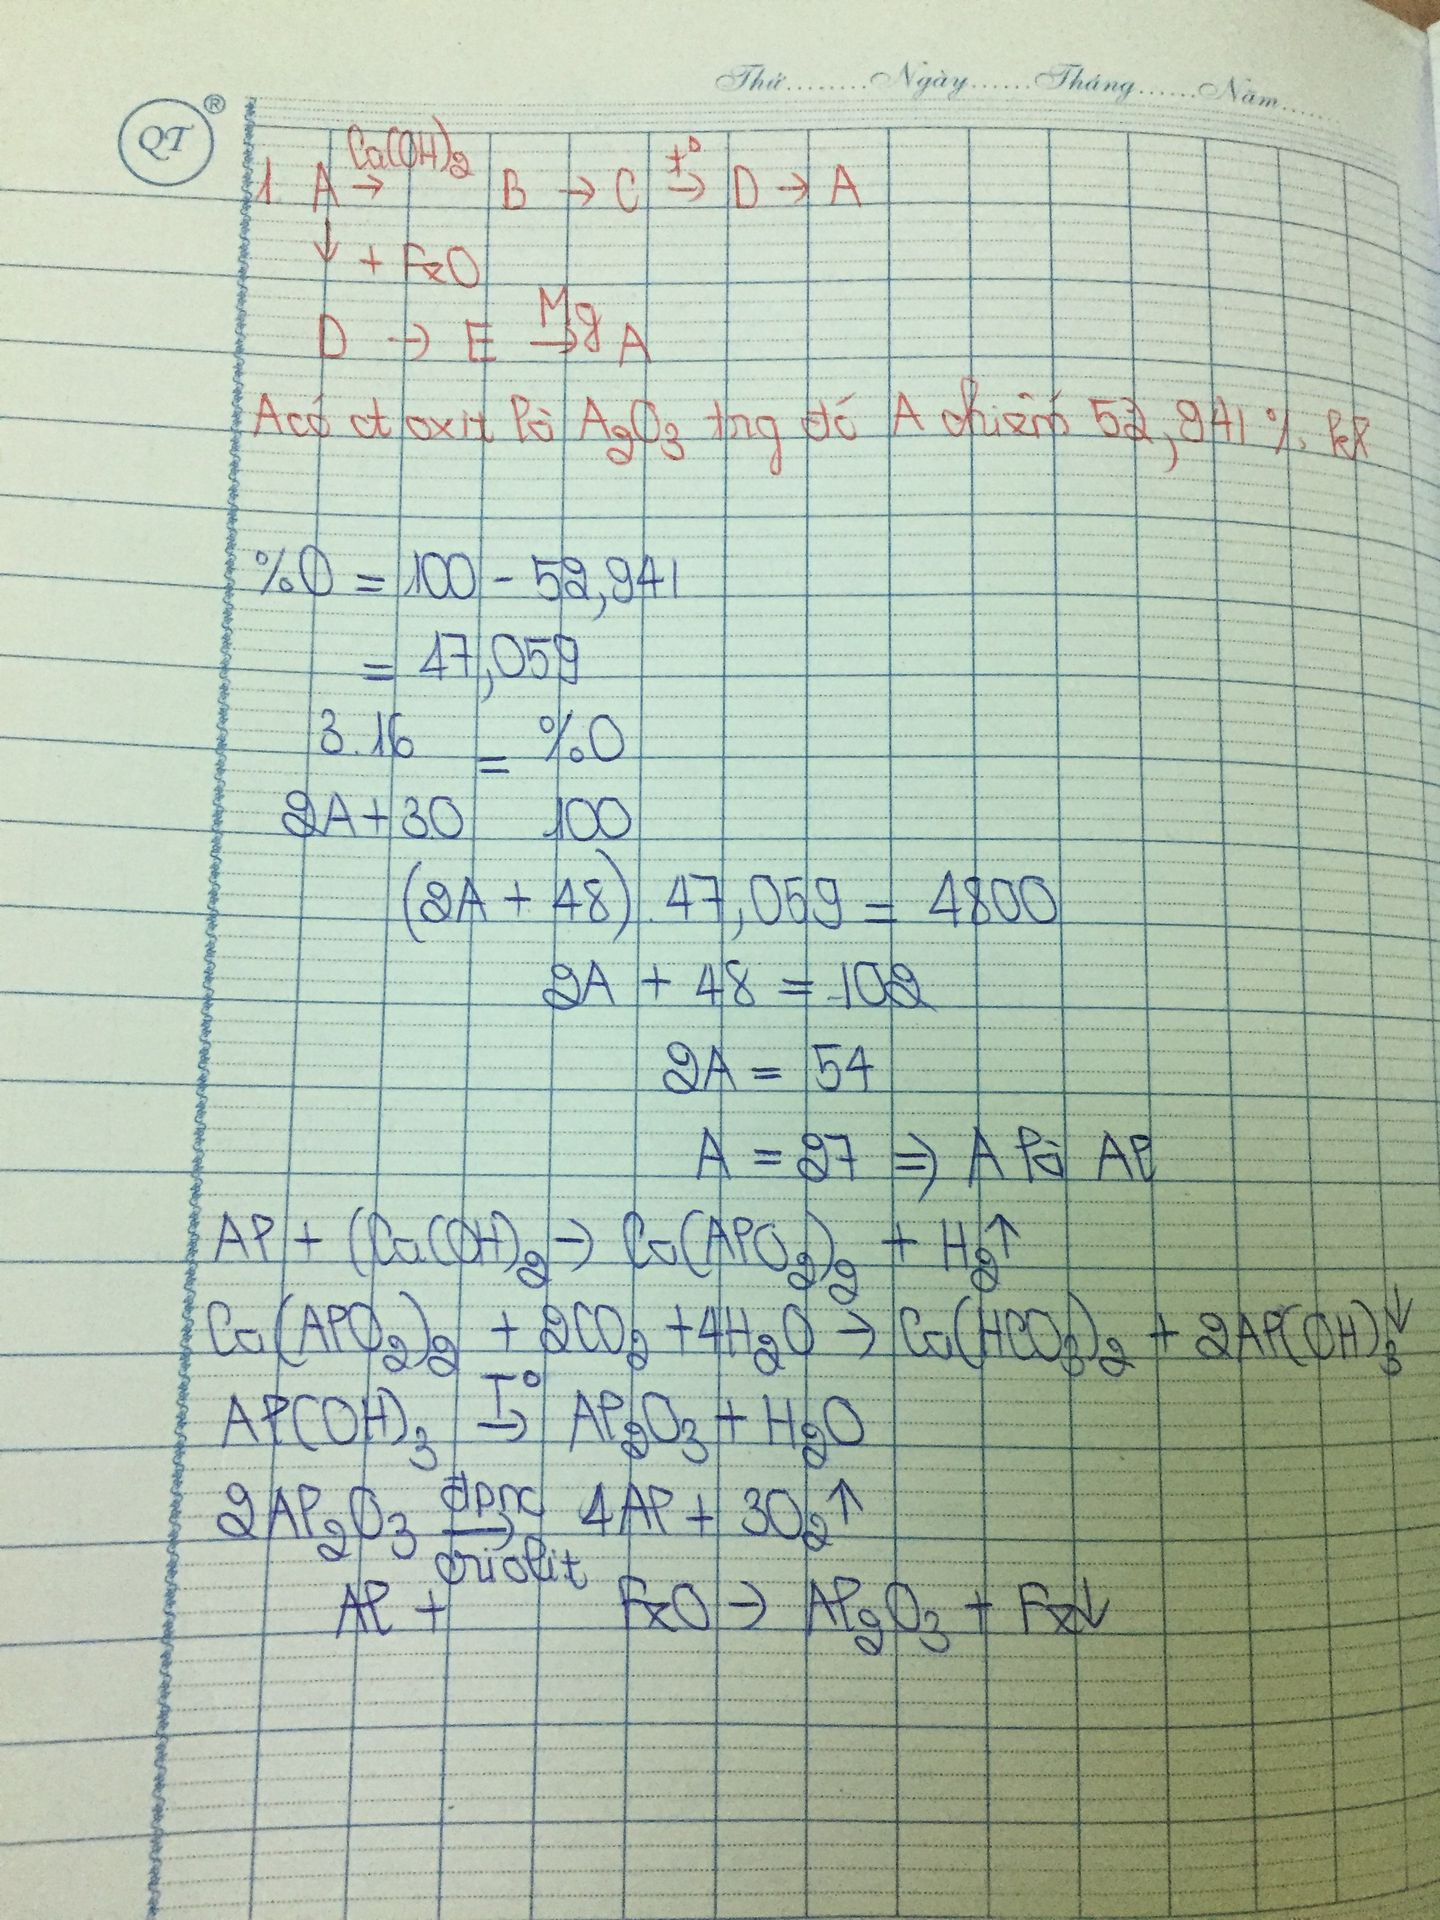 Thứ........Ngày......Tháng......Năm......
QT ®
1. A Ca(OH)2 → B → C t° → D → A
↓ + FxO
D → E Mg → A
A có ct oxit là A2O3 trg đó A chiếm 52,941 % kl
%O = 100 - 52,941
= 47,059
3.16 = %O
2A+30 100
(2A + 48) . 47,059 = 4800
2A + 48 = 102
2A = 54
A = 27 => A là Al
Al + (Ca(OH)2 → Ca(AlO2)2 + H2↑
Ca(AlO2)2 + 2CO2 + 4H2O → Ca(HCO3)2 + 2Al(OH)3↓
Al(OH)3 T° → Al2O3 + H2O
2Al2O3 đpnc → criolit 4Al + 3O2↑
Al + FxO → Al2O3 + Fx↓